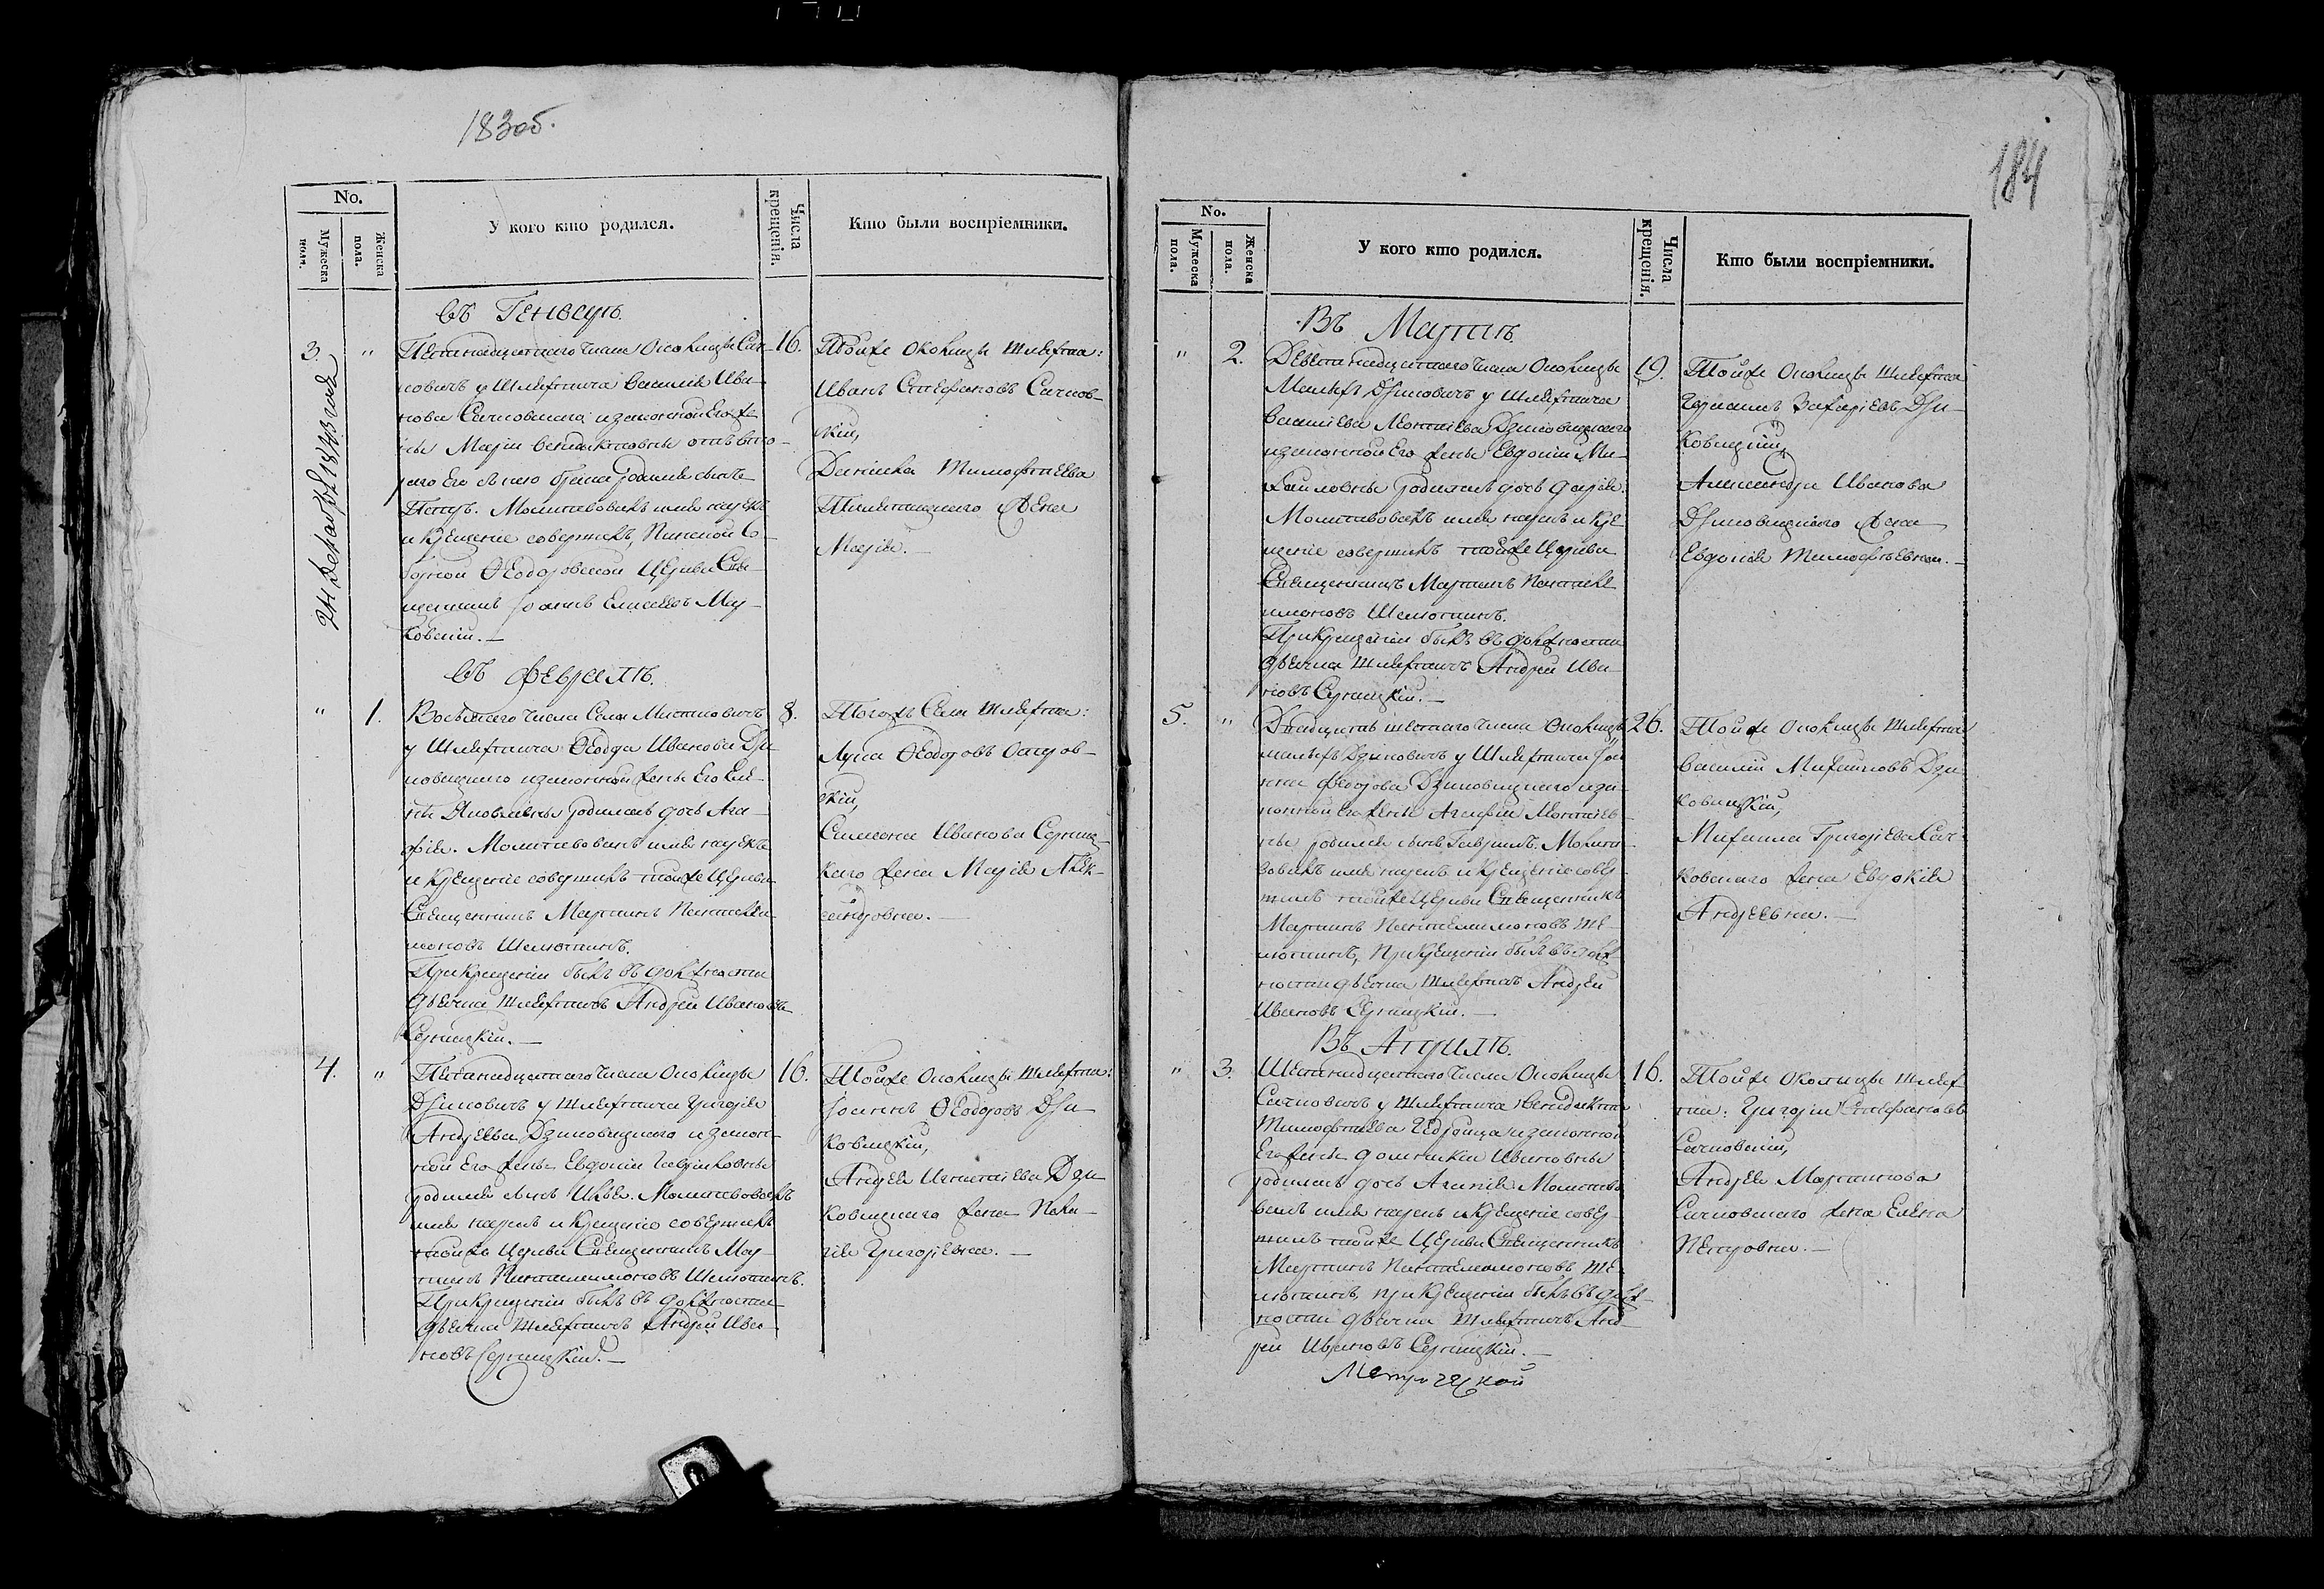 183об.
No.
Мужеска пола.
Женска пола.
У кого кто родился.
Числа крещенія.
Кто были воспріемники.
въ Генваръ.
3. " 16.
новичъ у Шляхтича Василія Ива-
нова Сачковскаго изаконной Его же
ны Маріи Венедиктовны отъ вто-
раго Его съ нею брака родился сынъ
Петръ. Молитвовалъ имя нарекъ
и крещеніе совершилъ, Пинской Со-
борной Ѳеодоровской Церкви Свя-
щенникъ Іоаннъ Елисеевъ Мац-
кевичъ.—
Тойже Околицы Шляхтя:
Иванъ Стефановъ Сачков-
скій,
Даніила Тимофѣева
жена
Марія.—
въ Февралѣ.
" 1. Восьмаго числа Села Мистковичъ 8.
у Шляхтича Ѳеодора Иванова Дзи-
ковицкаго изаконной жены Его Еле-
ны Яковлевны родилась дочь Ага-
фія. Молитвовалъ имя нарекъ
и крещеніе совершилъ тойже Церкви
Священникъ Мартинъ Пантелеи-
моновъ Шеметилъ.
При крещеніи былъ въ должности
дьячка шляхтичъ Андрей Ивановъ
Серницкій.—
Тогожъ Села Шляхтя:
Лука Ѳеодоровъ Остров-
скій,
Симеона Иванова Серниц-
каго жена Марія Алек-
сандровна.—
4. " Шестнадцатаго числа Околицы 16.
Дзиковичъ у Шляхтича Григорія
Андреева Дзиковицкаго изакон-
ной Его жены Евдокіи Гавриловны
родился сынъ Илья. Молитвовалъ
имя нарекъ и крещеніе совершилъ
тойже Церкви Священникъ Мар-
тинъ Пантелеимоновъ Шеметилъ.
При крещеніи былъ въ должности
дьячка шляхтичъ Андрей Ива-
новъ Серницкій.—
Тойже Околицы Шляхтя:
Іоаннъ Ѳеодоровъ Дзи-
ковицкій,
Андрея Игнатіева Дзи-
ковицкаго жена Пела-
гія Григоріевна.—
184
No.
Мужеска пола.
Женска пола.
У кого кто родился.
Числа крещенія.
Кто были воспріемники.
Въ Мартѣ.
" 2. Девятнадцатаго числа Околицы 19.
Малыхъ Дзиковичъ у Шляхтича
Василія Дзиковицкаго
изаконной Его жены Евдокіи Ми-
хайловны родилась дочь Дарія.
Молитвовалъ имя нарекъ и кре-
щеніе совершилъ тойже Церкви
Священникъ Мартинъ Пантеле-
имоновъ Шеметилъ.
При крещеніи былъ въ должности
дьячка шляхтичъ Андрей Ива-
новъ Серницкій.—
Тойже Околицы Шляхтя
Германъ Захаріевъ Дзи-
ковицкій,
Александра Иванова
Дзиковицкаго жена
Евдокія Тимофѣевна.—
5. " Двадцать шестаго числа Околицы 26.
малыхъ Дзиковичъ у Шляхтича Іоа-
нна Ѳеодорова Дзиковицкаго иза-
конной Его жены Агафіи
родился сынъ Гавріилъ. Молит-
вовалъ имя нарекъ и крещеніе совер-
шилъ тойже Церкви Священникъ
Мартинъ Пантелеимоновъ Ше-
метилъ, при крещеніи былъ въ долж-
ности дьячка шляхтичъ Андрей
Ивановъ Серницкій.—
Тойже Околицы Шляхтя
Василій Михаиловъ Дзи-
ковицкій,
Михаила Григоріева Сач-
ковскаго жена Евдокія
Андреевна.—
Въ Априлѣ.
" 3. Шестнадцатаго числа Околицы 16.
Сачковичъ у Шляхтича Венедикта
Тимофѣева изаконной
Его жены Домникіи Ивановны
родилась дочь Агапія. Молитво-
валъ имя нарекъ и крещеніе совер-
шилъ тойже Церкви Священникъ
Мартинъ Пантелеимоновъ Ше-
метилъ, при крещеніи былъ въ долж-
ности дьячка шляхтичъ Анд-
рей Ивановъ Серницкій.—
Тойже Околицы Шлях-
тя: Григорій Стефановъ
Сачковскій,
Андрея Мартинова
Сачковскаго жена Елена
Петровна.—
Метрической